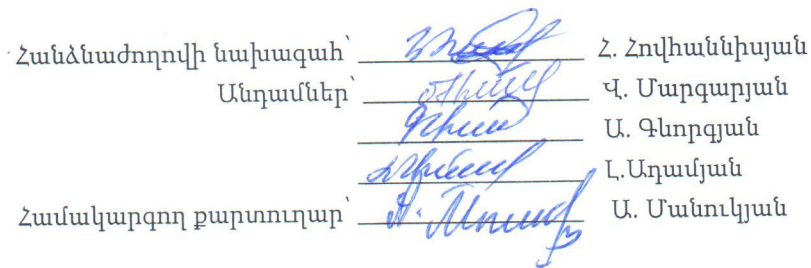 Հանձնաժողովի նախագահ՝ Հ. Հովհաննիսյան
Անդամներ՝ Վ. Մարգարյան
Ա. Գևորգյան
Լ.Ադամյան
Համակարգող քարտուղար՝ Ա. Մանուկյան